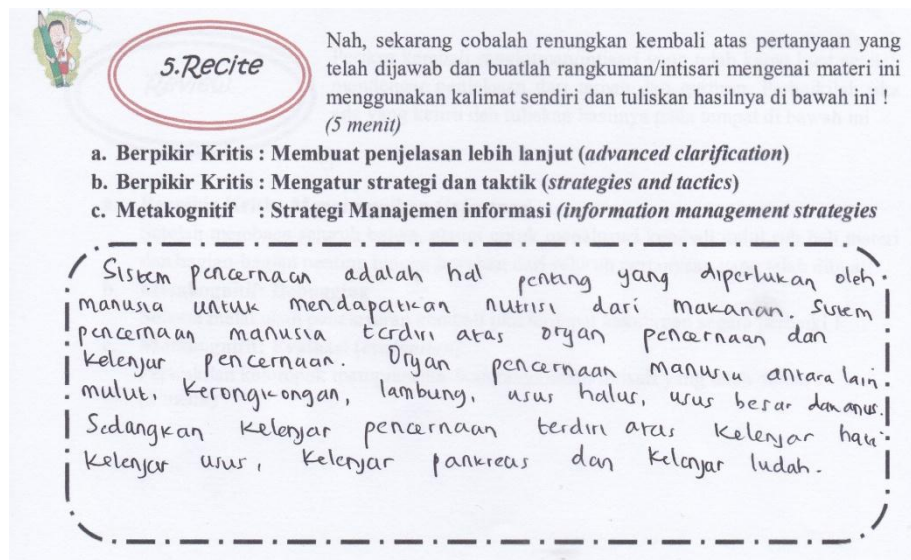 5.Recite
Nah, sekarang cobalah renungkan kembali atas pertanyaan yang
telah dijawab dan buatlah rangkuman/intisari mengenai materi ini
menggunakan kalimat sendiri dan tuliskan hasilnya di bawah ini !
(5 menit)
a. Berpikir Kritis : Membuat penjelasan lebih lanjut (advanced clarification)
b. Berpikir Kritis : Mengatur strategi dan taktik (strategies and tactics)
c. Metakognitif : Strategi Manajemen informasi (information management strategies
Sistem pencernaan adalah hal penting yang diperlukan oleh
manusia untuk mendapatkan nutrisi dari makanan. Sistem
pencernaan manusia terdiri atas organ pencernaan dan
kelenjar pencernaan. Organ pencernaan manusia antara lain:
mulut, kerongkongan, lambung, usus halus, usus besar dan anus.
Sedangkan kelenjar pencernaan terdiri atas kelenjar hati
kelenjar usus, kelenjar pankreas dan kelenjar ludah.